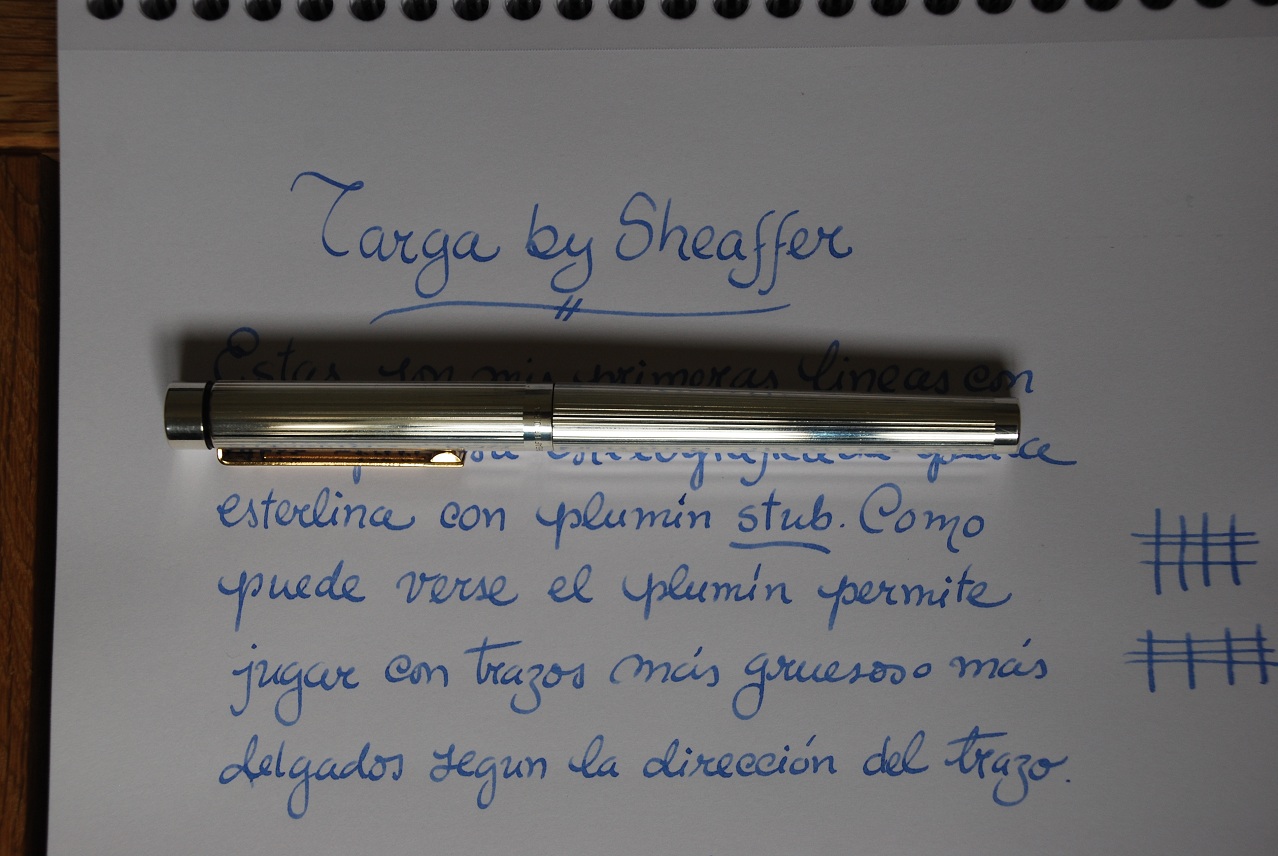 Targa by Sheaffer
Estas son mis primeras lineas con
esterlina con plumín stub. Como
puede verse el plumín permite
jugar con trazos más gruesos o más
delgados segun la dirección del trazo.